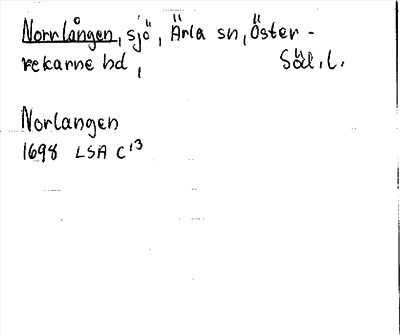 Norrlången, sjö, Ärla sn, Öster-
rekarne hd, Söd. l.
Norlangen
1698 LSA C13